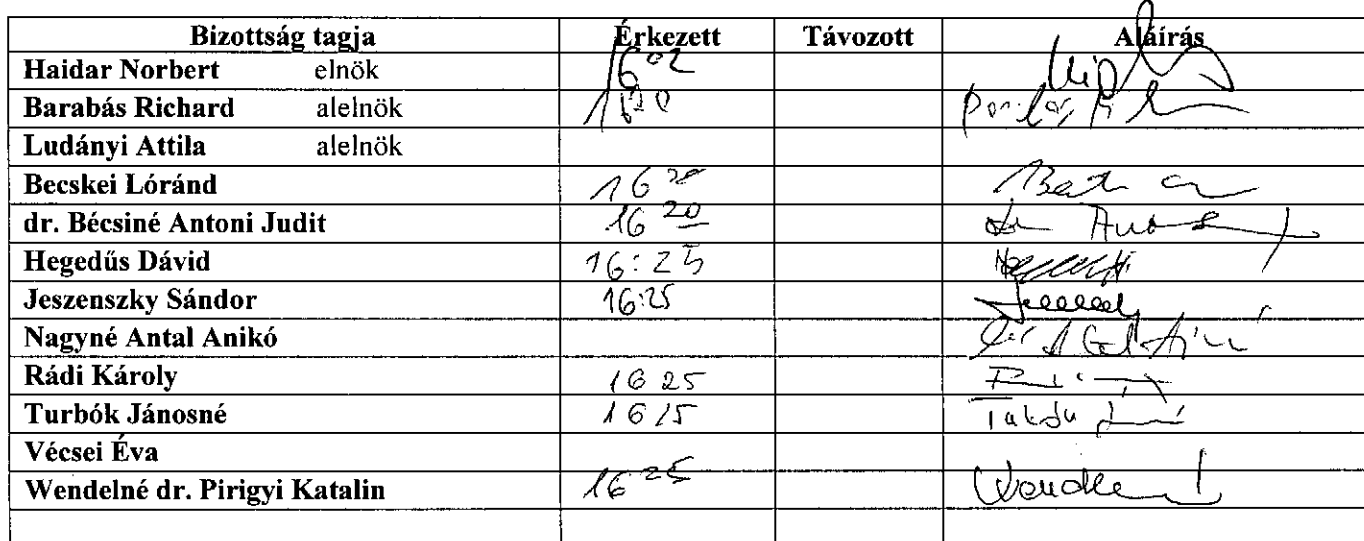 Bizottság tagja Érkezett Távozott Aláírás
Haidar Norbert elnök 16 02
Barabás Richard alelnök
Ludányi Attila alelnök
Becskei Lóránd 16 20
dr. Bécsiné Antoni Judit 16 20
Hegedűs Dávid 16:25
Jeszenszky Sándor 16:25
Nagyné Antal Anikó
Rádi Károly 16 25
Turbók Jánosné 16 15
Vécsei Éva
Wendelné dr. Pirigyi Katalin 16 25